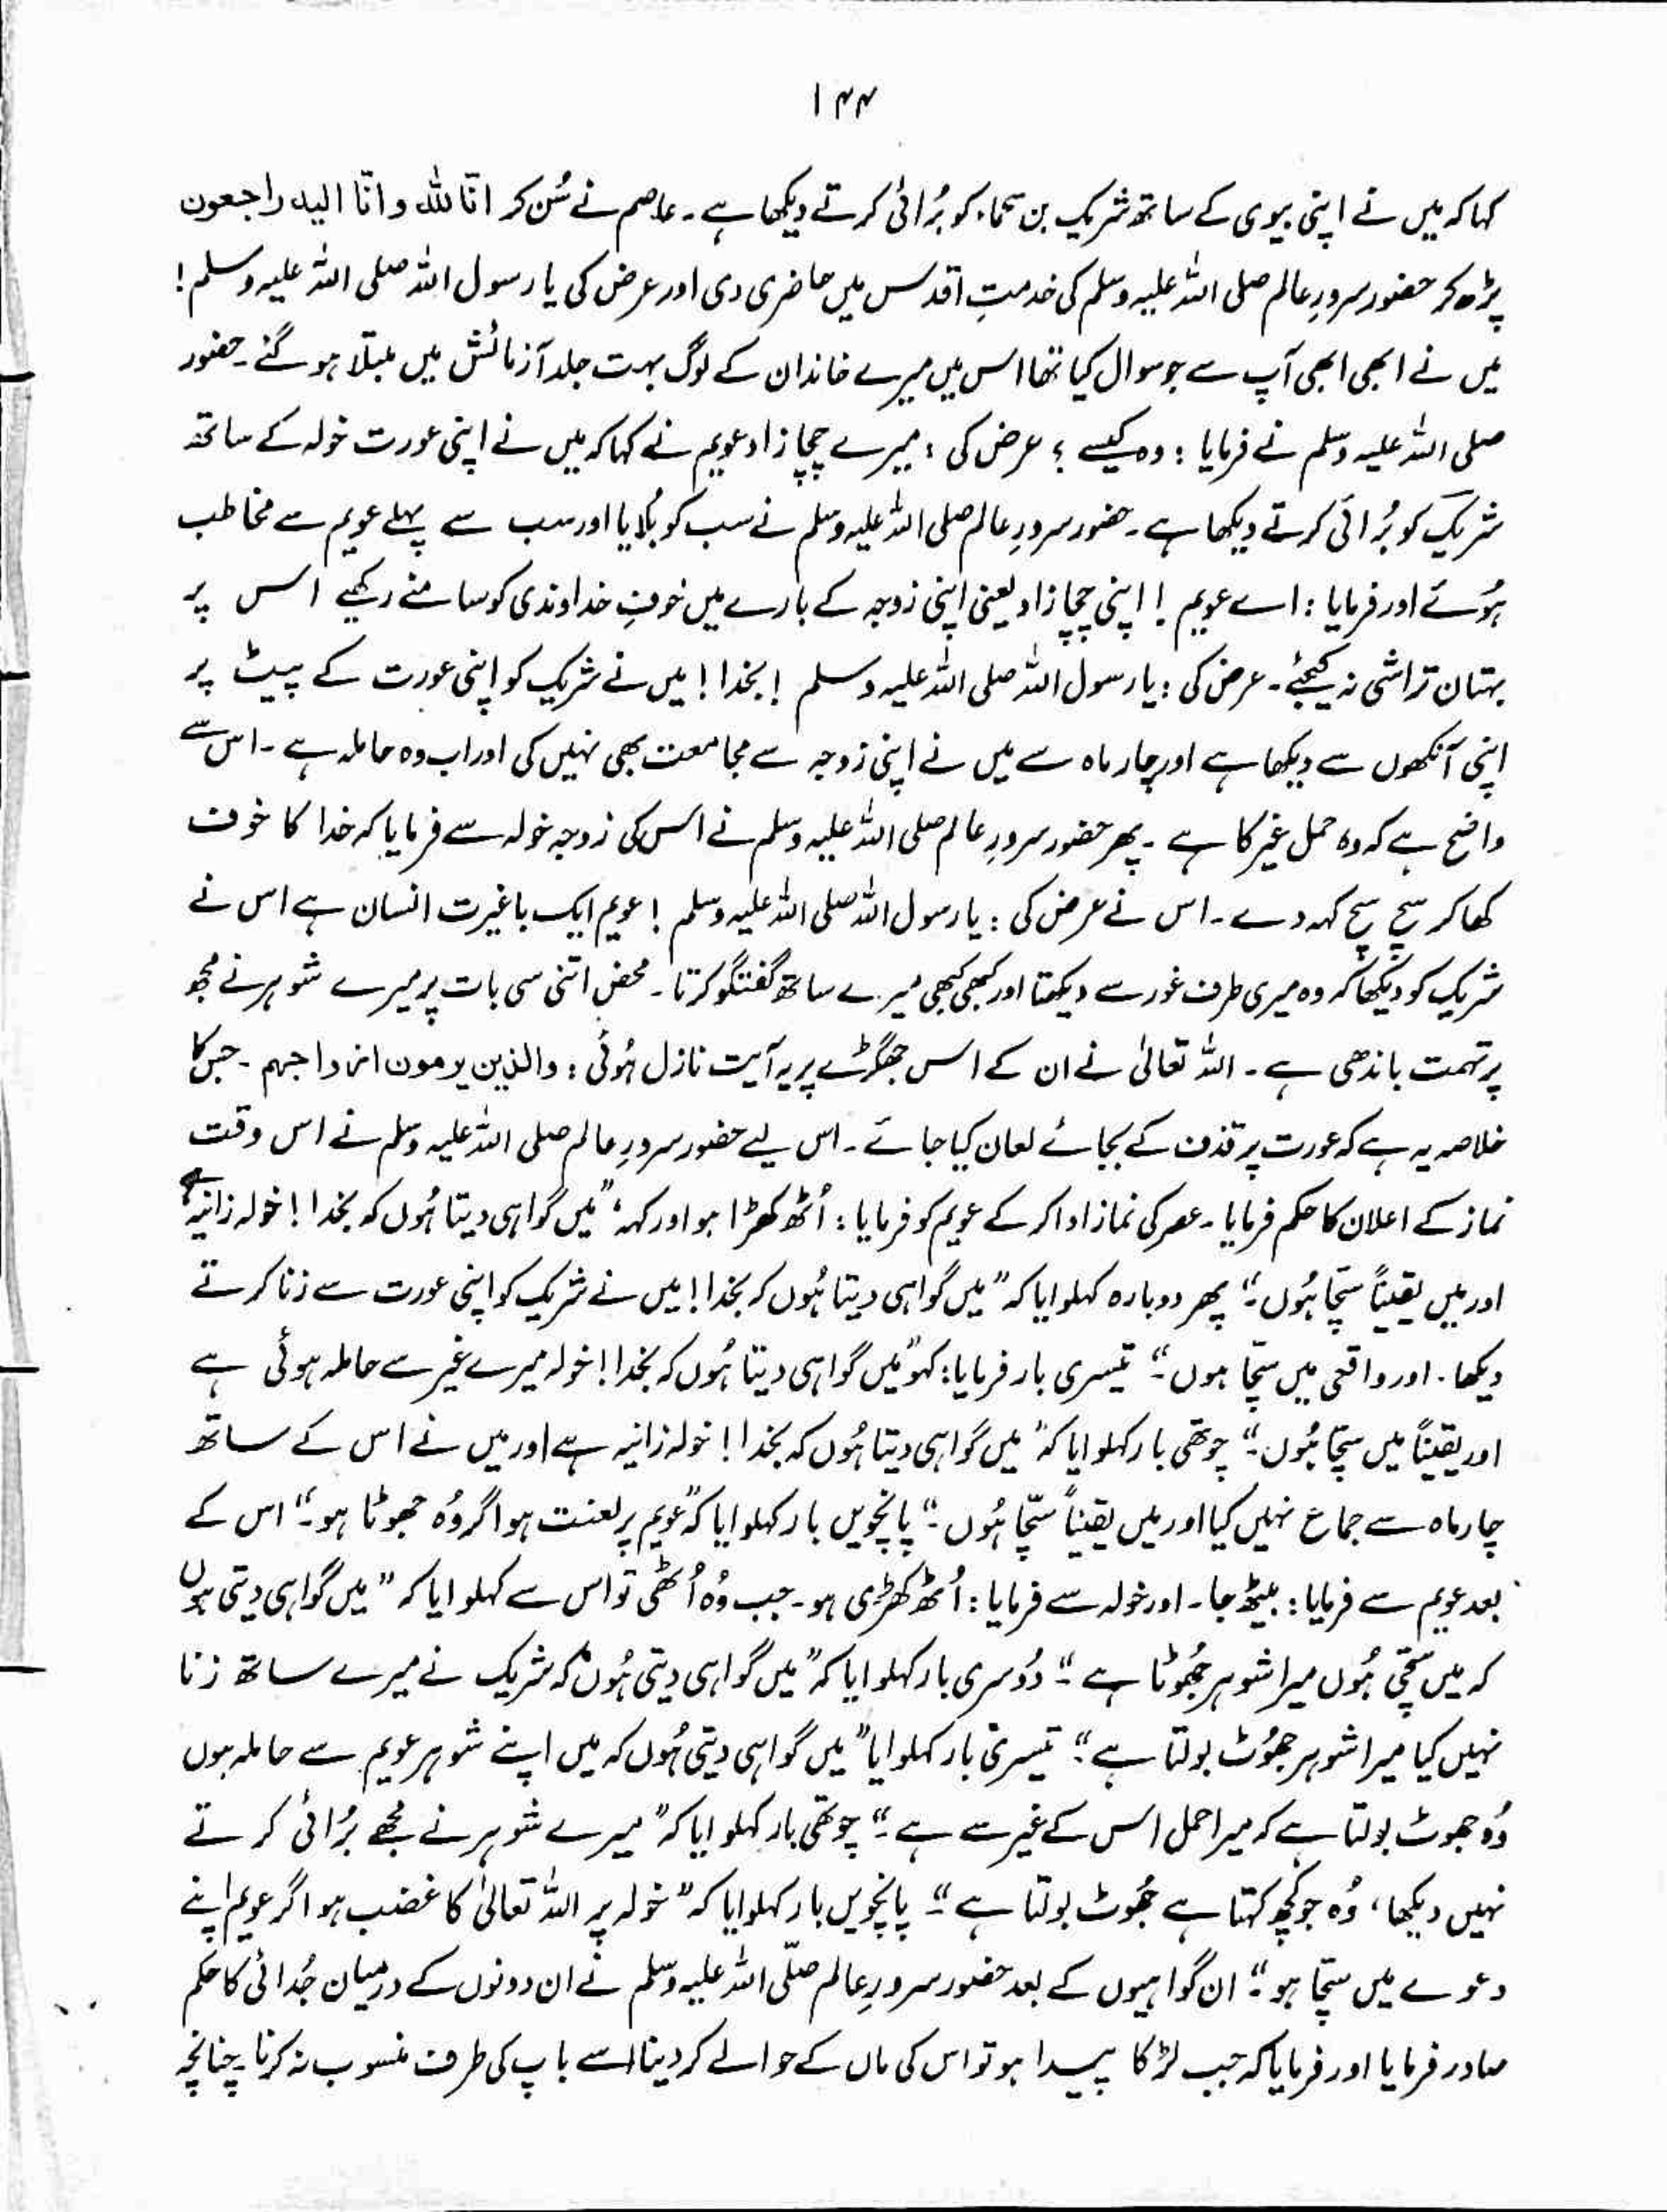 ۱۴۴
کہا کہ میں نے اپنی بیوی کے ساتھ شریک بن سحماء کو بُرائی کرتے دیکھا ہے۔ عاصم نے سُن کر انّا للہ وانّا الیہ راجعون
پڑھ کر حضور سرورِ عالم صلی اللہ علیہ وسلم کی خدمتِ اقدس میں حاضری دی اور عرض کی یا رسول اللہ صلی اللہ علیہ وسلم!
میں نے ابھی ابھی آپ سے جو سوال کیا تھا اس میں میرے خاندان کے لوگ بہت جلد آزمائش میں مبتلا ہو گئے۔ حضور
صلی اللہ علیہ وسلم نے فرمایا : وہ کیسے ؟ عرض کی : میرے چچا زاد عویم نے کہا کہ میں نے اپنی عورت خولہ کے ساتھ
شریک کو بُرائی کرتے دیکھا ہے۔ حضور سرورِ عالم صلی اللہ علیہ وسلم نے سب کو بُلایا اور سب سے پہلے عویم سے مخاطب
ہُوئے اور فرمایا : اے عویم ! اپنی چچا زاد یعنی اپنی زوجہ کے بارے میں خوفِ خداوندی کو سامنے رکھیے اس پر
بہتان تراشی نہ کیجئے۔ عرض کی : یا رسول اللہ صلی اللہ علیہ وسلم ! بخدا ! میں نے شریک کو اپنی عورت کے پیٹ پر
اپنی آنکھوں سے دیکھا ہے اور چار ماہ سے میں نے اپنی زوجہ سے مجامعت بھی نہیں کی اور اب وہ حاملہ ہے۔ اس سے
واضح ہے کہ وہ حمل غیر کا ہے۔ پھر حضور سرورِ عالم صلی اللہ علیہ وسلم نے اس کی زوجہ خولہ سے فرمایا کہ خدا کا خوف
کھا کر سچ سچ کہہ دے۔ اس نے عرض کی : یا رسول اللہ صلی اللہ علیہ وسلم ! عویم ایک باغیرت انسان ہے اس نے
شریک کو دیکھا کہ وہ میری طرف غور سے دیکھتا اور کبھی کبھی میرے ساتھ گفتگو کرتا۔ محض اتنی سی بات پر میرے شوہر نے مجھ
پر تہمت باندھی ہے۔ اللہ تعالیٰ نے ان کے اس جھگڑے پر یہ آیت نازل ہُوئی : والذین یرمون ازواجہم۔ جس کا
خلاصہ یہ ہے کہ عورت پر قذف کے بجائے لعان کیا جائے۔ اس لیے حضور سرورِ عالم صلی اللہ علیہ وسلم نے اس وقت
نماز کے اعلان کا حکم فرمایا۔ عصر کی نماز ادا کر کے عویم کو فرمایا : اُٹھ کھڑا ہو اور کہہ "میں گواہی دیتا ہُوں کہ بخدا ! خولہ زانیہ ہے
اور میں یقیناً سچّا ہُوں۔" پھر دوبارہ کہلوایا کہ "میں گواہی دیتا ہُوں کہ بخدا ! میں نے شریک کو اپنی عورت سے زنا کرتے
دیکھا۔ اور واقعی میں سچّا ہوں۔" تیسری بار فرمایا : کہو "میں گواہی دیتا ہُوں کہ بخدا ! خولہ میرے غیر سے حاملہ ہوئی ہے
اور یقیناً میں سچّا ہُوں۔" چوتھی بار کہلوایا کہ "میں گواہی دیتا ہُوں کہ بخدا ! خولہ زانیہ ہے اور میں نے اس کے ساتھ
چار ماہ سے جماع نہیں کیا اور میں یقیناً سچّا ہُوں۔" پانچویں بار کہلوایا کہ "عویم پر لعنت ہو اگر وُہ جھوٹا ہو۔" اس کے
بعد عویم سے فرمایا : بیٹھ جا۔ اور خولہ سے فرمایا : اُٹھ کھڑی ہو۔ جب وُہ اُٹھی تو اس سے کہلوایا کہ "میں گواہی دیتی ہوں
کہ میں سچّی ہُوں میرا شوہر جُھوٹا ہے۔" دُوسری بار کہلوایا کہ "میں گواہی دیتی ہُوں کہ شریک نے میرے ساتھ زنا
نہیں کیا میرا شوہر جھُوٹ بولتا ہے۔" تیسری بار کہلوایا "میں گواہی دیتی ہُوں کہ میں اپنے شوہر عویم سے حاملہ ہوں
وُہ جھوٹ بولتا ہے کہ میرا حمل اس کے غیر سے ہے۔" چوتھی بار کہلوایا کہ "میرے شوہر نے مجھے بُرائی کرتے
نہیں دیکھا، وُہ جو کچھ کہتا ہے جُھوٹ بولتا ہے۔" پانچویں بار کہلوایا کہ "خولہ پر اللہ تعالیٰ کا غضب ہو اگر عویم اپنے
دعوے میں سچّا ہو۔" ان گواہیوں کے بعد حضور سرورِ عالم صلّی اللہ علیہ وسلم نے ان دونوں کے درمیان جُدائی کا حکم
صادر فرمایا اور فرمایا کہ جب لڑکا پیدا ہو تو اس کی ماں کے حوالے کر دینا اسے باپ کی طرف منسوب نہ کرنا۔ چنانچہ